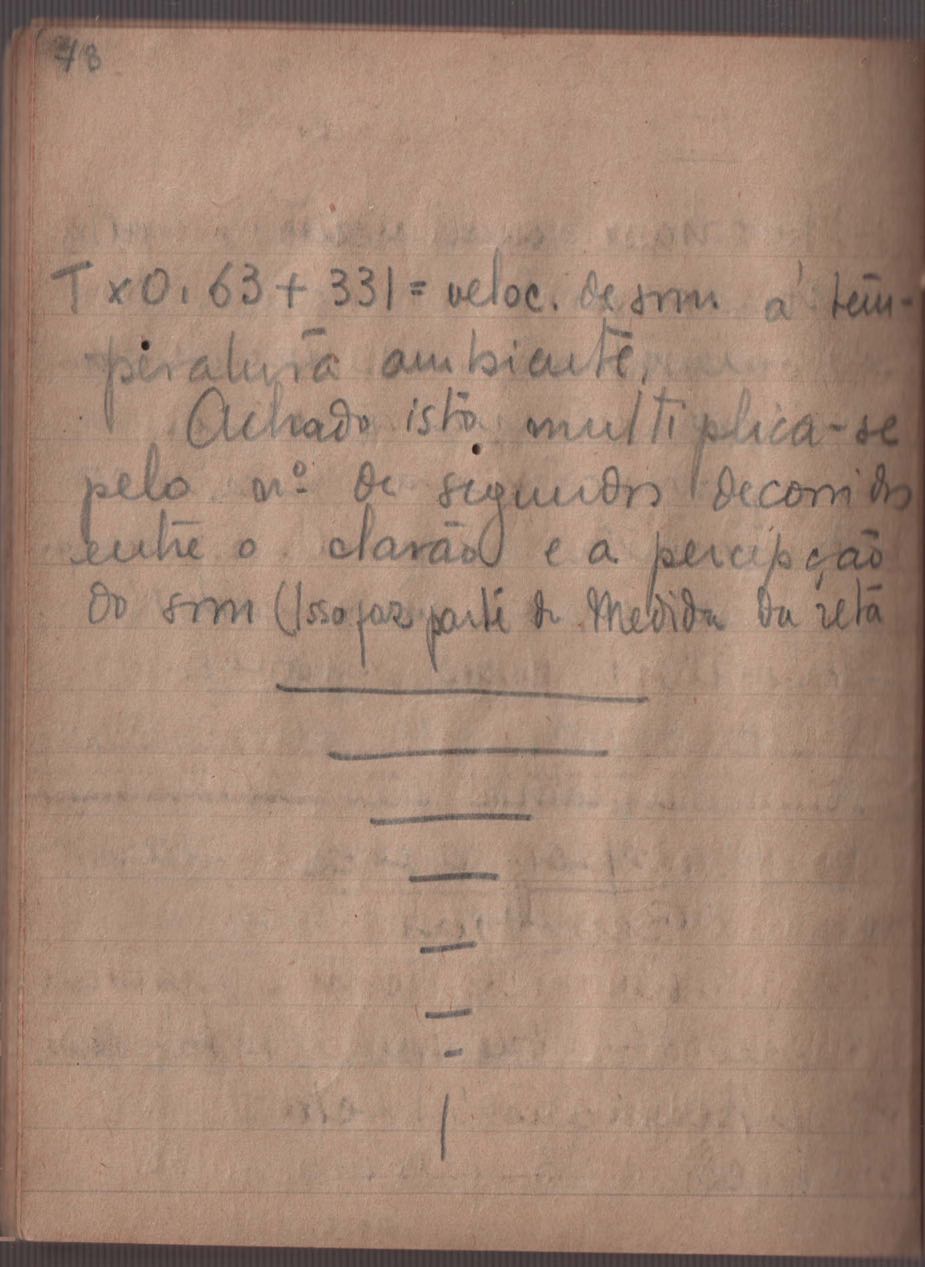 78
T x 0,63 + 331 = veloc. de som á tem-
peratura ambiente.
Achado isto, multiplica-se
pelo nº de segundos decorridos
entre o clarão e a percepção
do som (Isso faz parte da Medida da reta